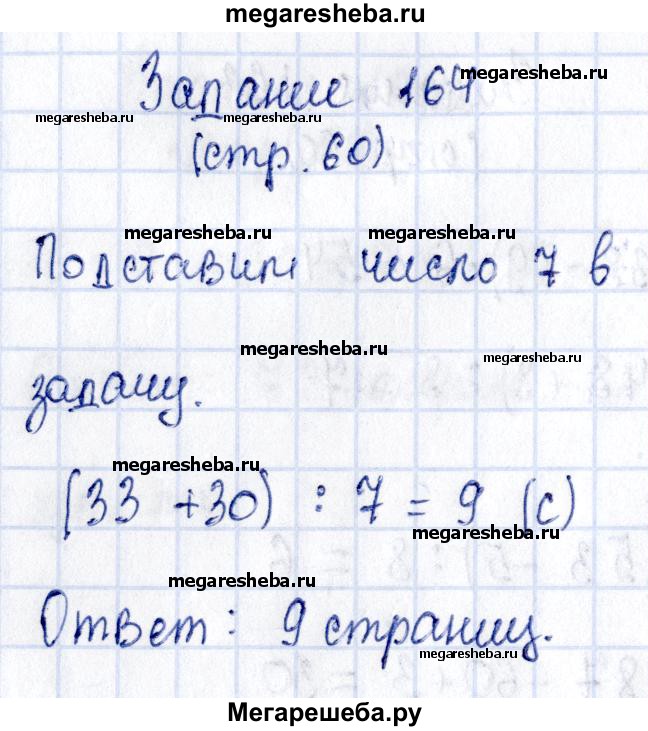 megaresheba.ru
Задание 164
megaresheba.ru
megaresheba.ru megaresheba.ru
(стр. 60)
megaresheba.ru megaresheba.ru
Подставим число 7 в
megaresheba.ru
megaresheba.ru
задачу.
megaresheba.ru
(33 + 30) : 7 = 9 (с)
megaresheba.ru
megaresheba.ru
Ответ: 9 страниц.
megaresheba.ru
Мегарешеба.ру